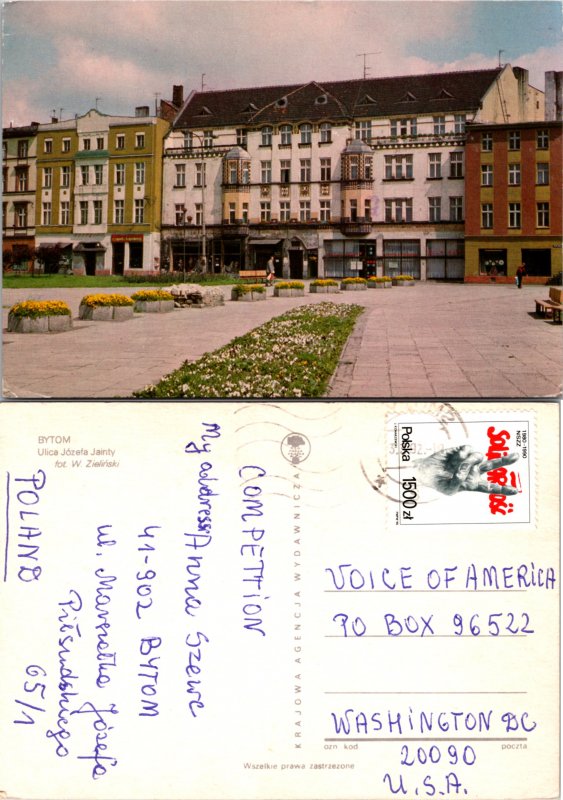 BYTOM
Ulica Józefa Jainty
fot. W. Zieliński
COMPETTION
My address: Anna Szewc
41-902 BYTOM
ul. Marszałka Józefa
Piłsudskiego
65/1
POLAND
KRAJOWA AGENCJA WYDAWNICZA
Polska 1500 zł
Solidarność
NSZZ
1980-1990
VOICE OF AMERICA
PO BOX 96522
WASHINGTON DC
20090
U.S.A.
ozn kod
poczta
Wszelkie prawa zastrzeżone